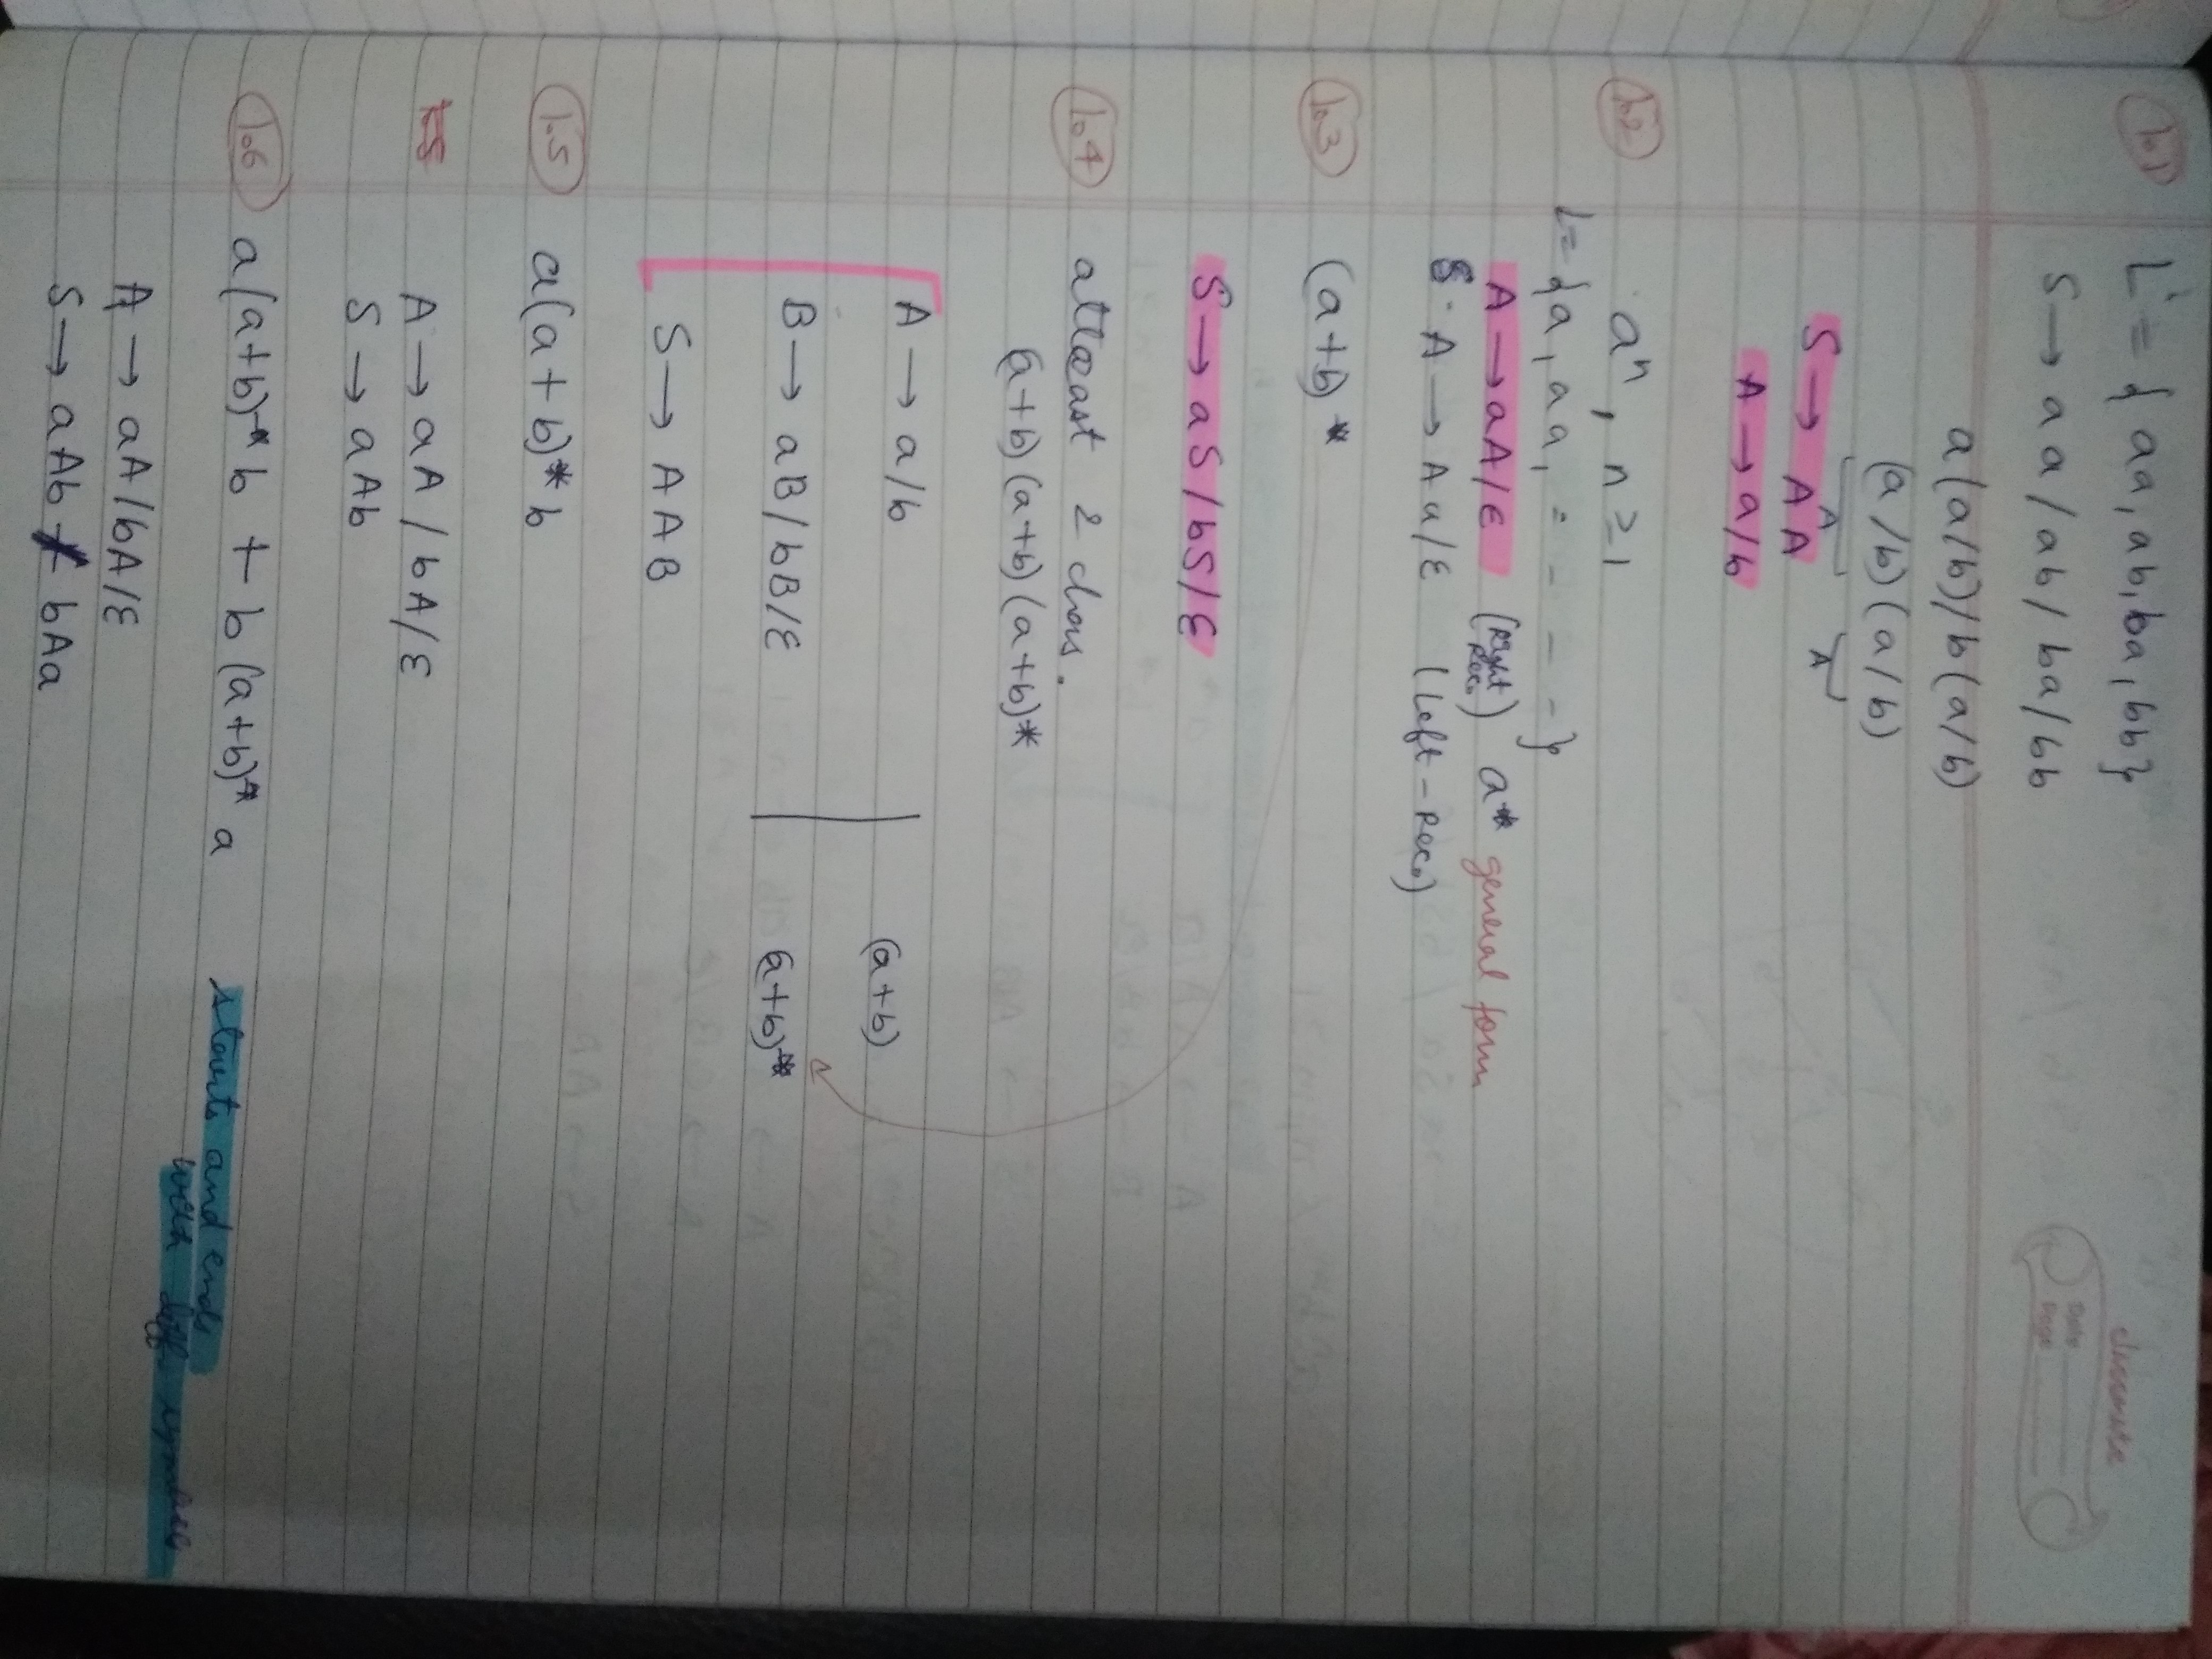 classmate
Date
Page
1.1 L = { aa, ab, ba, bb }
S → aa / ab / ba / bb
a(a/b) / b(a/b)
(a/b) (a/b)
A A
S → A A
A → a/b
1.2 aⁿ, n ≥ 1
L = { a, aa, = - - - - }
A → aA/ε (Right Rec.) a* general form
A → Aa/ε (Left-Rec.)
1.3 (a+b)*
S → aS / bS / ε
1.4 atleast 2 chars.
(a+b) (a+b) (a+b)*
A → a/b (a+b)
B → aB/bB/ε (a+b)*
S → A A B
1.5 a(a+b)* b
A → aA / bA / ε
S → aAb
1.6 a(a+b)* b + b(a+b)* a starts and ends
with diff symbol
A → aA / bA / ε
S → aAb / bAa